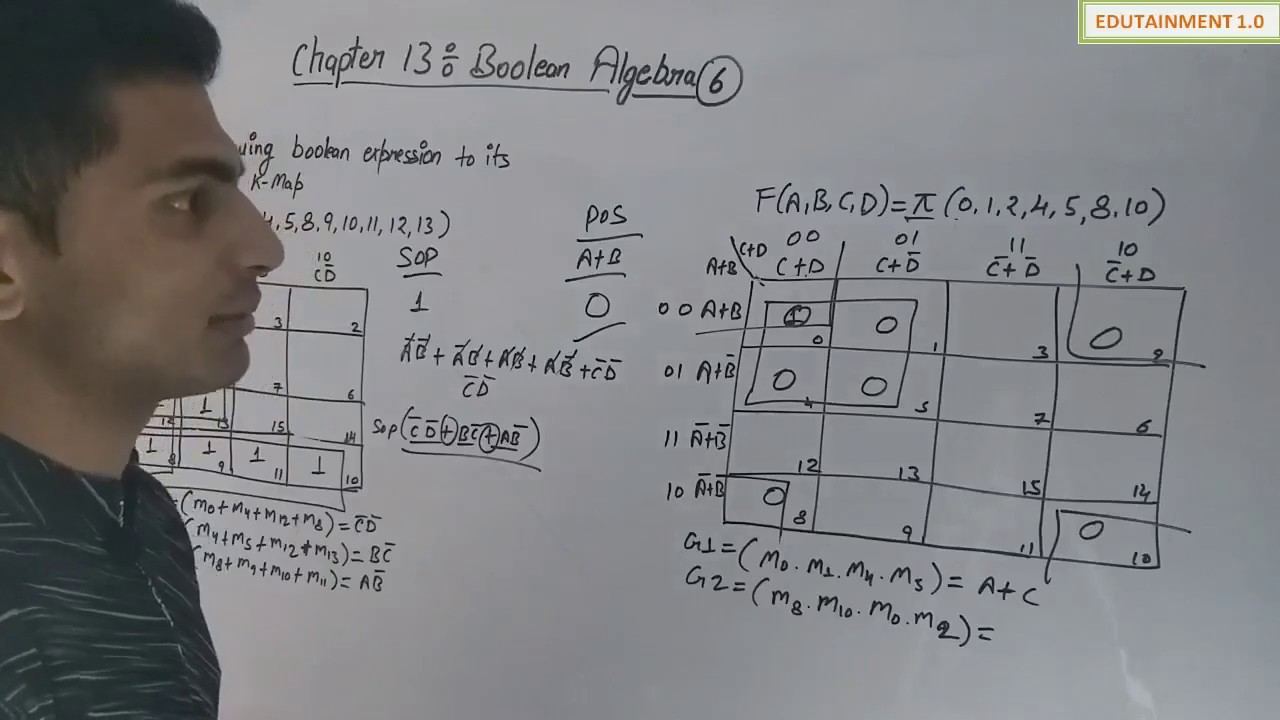 EDUTAINMENT 1.0
Chapter 13: Boolean Algebra 6
boolean expression to its
K-Map
4, 5, 8, 9, 10, 11, 12, 13)
10
C̅D̅
3 2
7 6
1 1
12 13 15 14
1 1 1 1
8 9 11 10
=(m0+m4+m12+m8)=C̅D̅
(m4+m5+m12+m13)=BC̅
(m8+m9+m10+m11)=AB̅
SOP
1
POS
A+B
0
A̅B̅+A̅B+AB+AB̅+C̅D̅
C̅D̅
SOP(C̅D̅+BC̅+AB̅)
F(A,B,C,D)=π(0,1,2,4,5,8,10)
00 01 11 10
A+B C+D C+D C+D̅ C̅+D̅ C̅+D
00 A+B 0 0 0
0 1 3 2
01 A+B̅ 0 0
4 5 7 6
11 A̅+B̅
12 13 15 14
10 A̅+B 0 0
8 9 11 10
G1=(m0.m1.m4.m5)=A+C
G2=(m8.m10.m0.m2)=